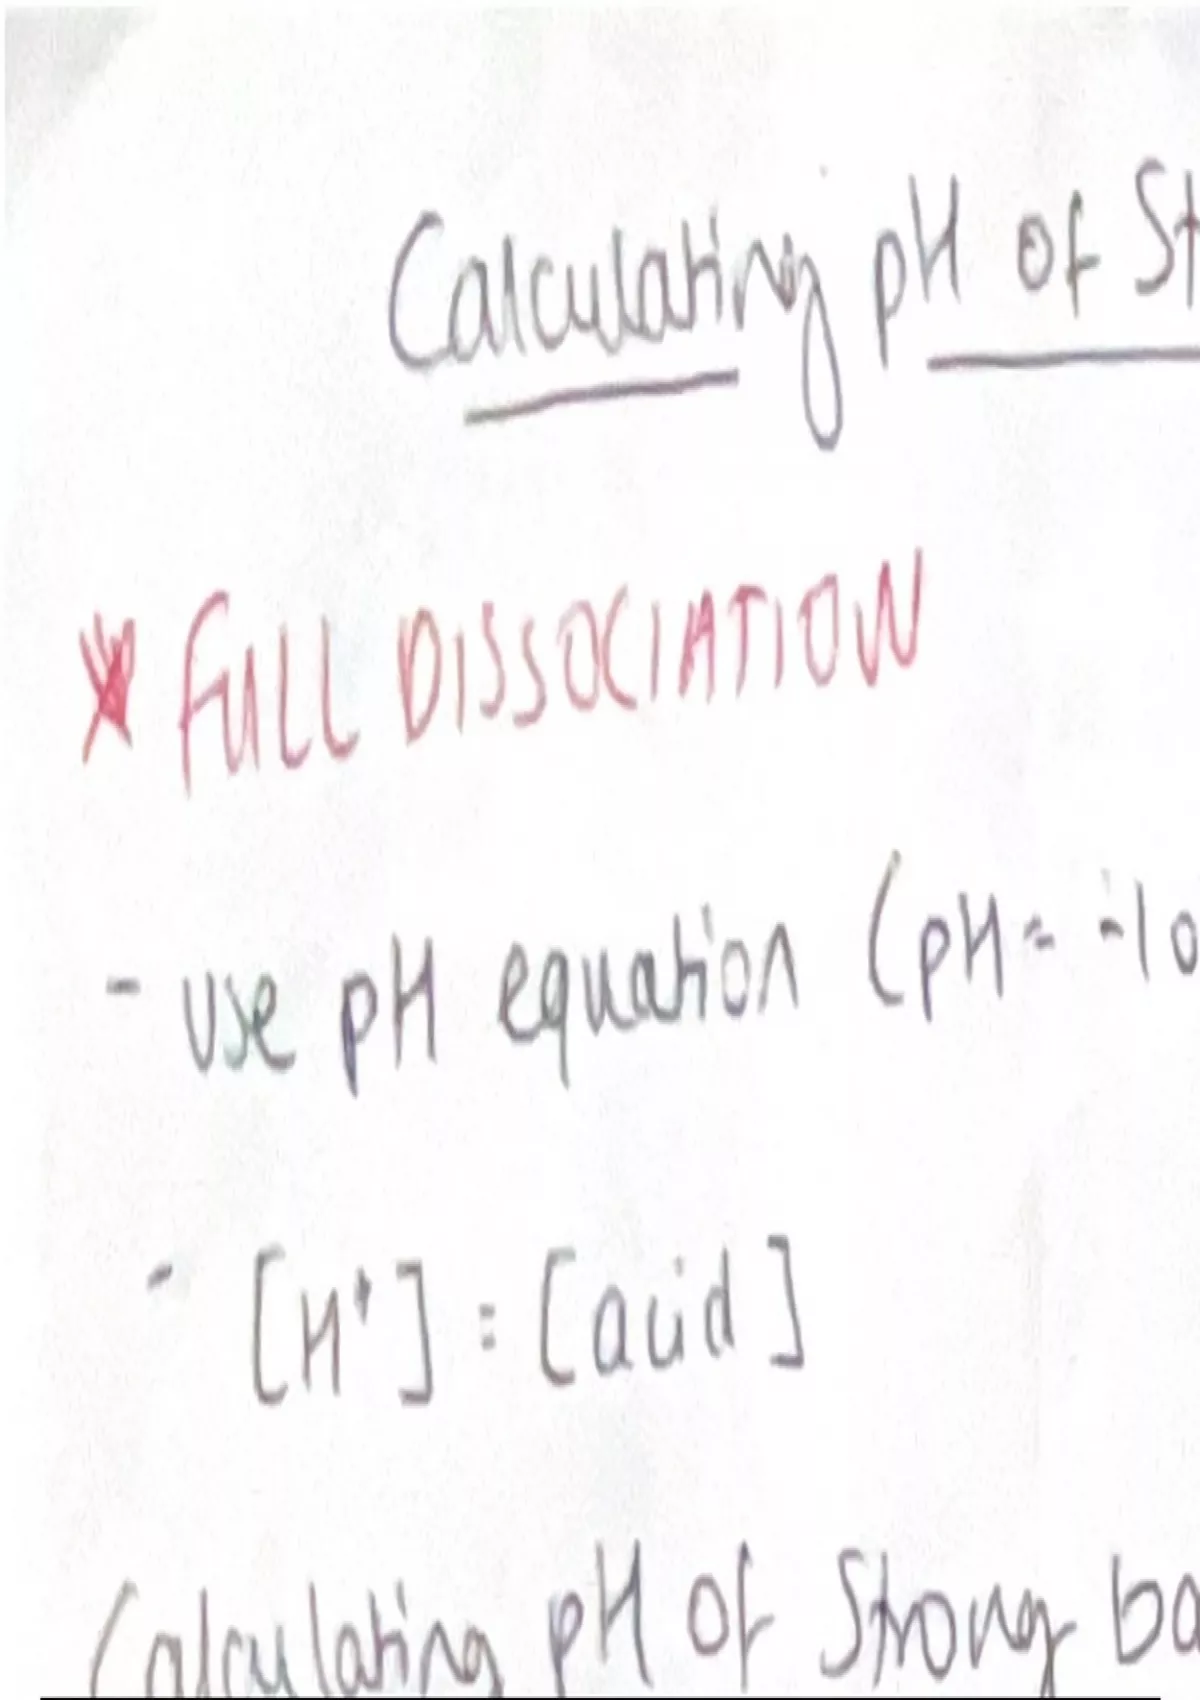 Calculating pH of St
* FULL DISSOCIATION
- use pH equation (pH = -lo
- [H+] = [acid]
Calculating pH of Strong ba